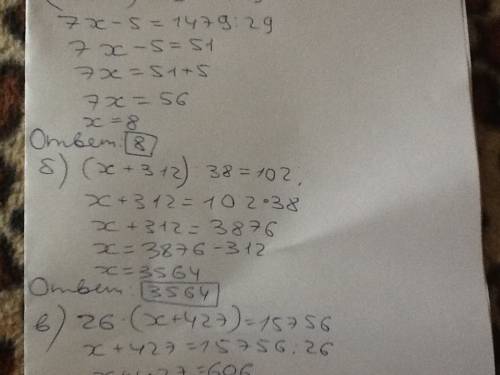 7x-5=1479:29
7x-5=51
7x=51+5
7x=56
x=8
Ответ: 8
б) (x+312) 38=102.
x+312=102•38
x+312=3876
x=3876-312
x=3564
Ответ: 3564
в) 26·(x+427)=15756
x+427=15756:26
x+427=606